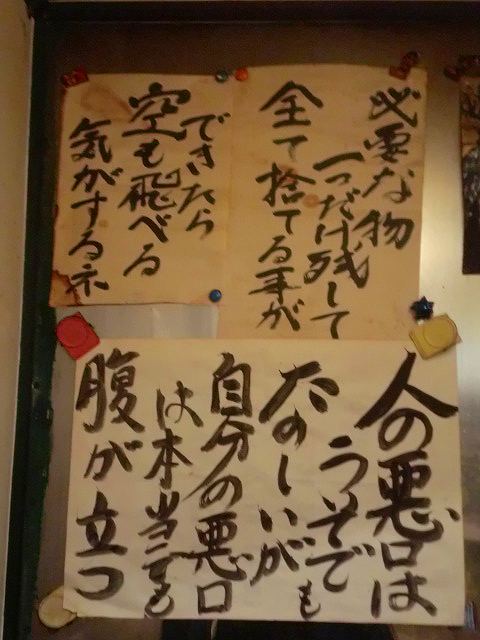 必要な物
一つだけ残して
全て捨てる事が
できたら
空も飛べる
気がするネ
人の悪口は
うそでも
たのしいが
自分の悪口
は本当でも
腹が立つ